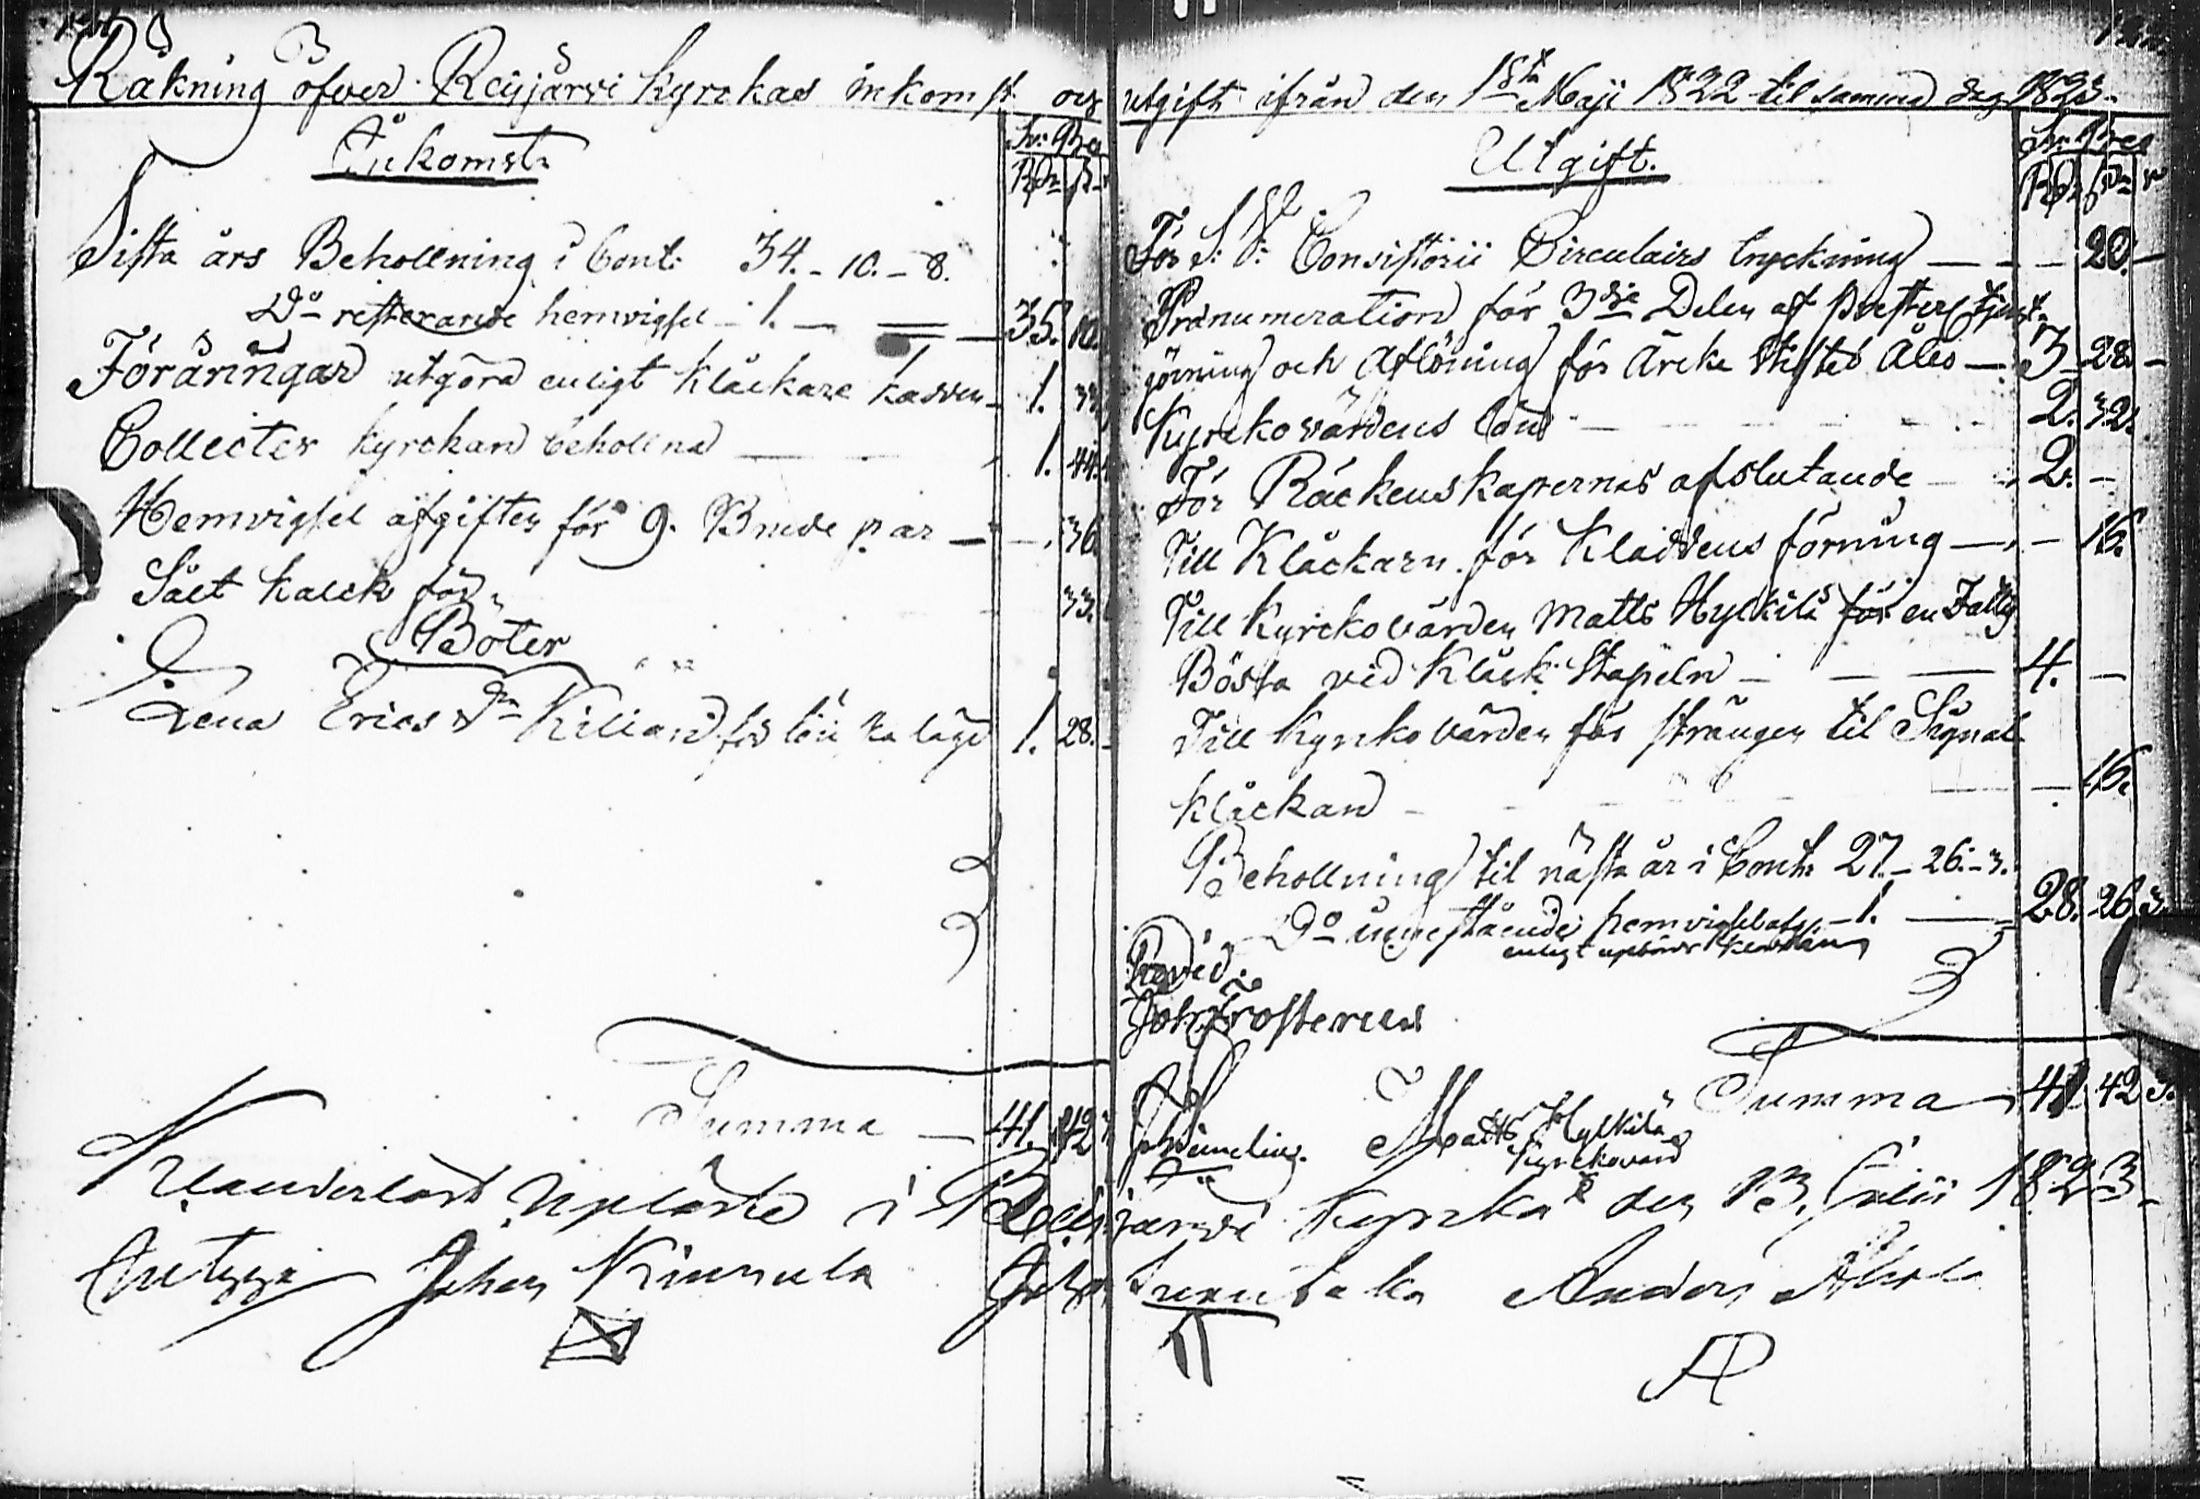 Räkning öfver Reisjärvi Kyrckas inkomst och utgift ifrån den 1sta Maji 1822 til samma dag 1823.
Inkomst
Sv: Bco
Rdr s r
Sista års Behollning i Cont: 34. - 10. - 8.
Do resterande hemvigsel - 1. - 35. 10.
Föräringar utgöra enligt Klåckare kassen - 1. 33
Collecter kyrckan behollna 1. 44.
Hemvigsel afgiften för 9. Brude par - 36.
Sålt kalck för 33.
Böter
Lena Ericsdr Kiliani för lönskaläge 1. 28.
Summa - 41. 42
Utgift.
Sv: Bco
Rdr s r
För S: V: Consistorii Circulairs tryckning - 20. -
Pränumeration för 3dje Delen af Prester tjenst-
göring och Aflöning för Ärcke Stiftet Åbo - 3 28. -
Kyrckovärdens lön - 2. 32.
För Räckenskapernas afslutande - 2. -
Till Klåckarn för Kläddens förning - 16.
Till Kyrckovärden Matts Hylkilä för en Fattig
Bössa vid Klåck Stapeln - 4. -
Till Kyrkovärden för strängen til Signal
klåckan - 16.
Behollning til nästa år i Cont: 27. - 26. - 3.
Do innestående hemvigselafg - 1. - 28. 26. 3.
enligt upbörds
Revid:
Joh Frosterus
Summa 41. 42 3.
Matts Hylkilä
Kyrckovärd
Upläste i Reisjärvi Kyrcka den 13 Julii 1823 -
Johan Kinnula Anders